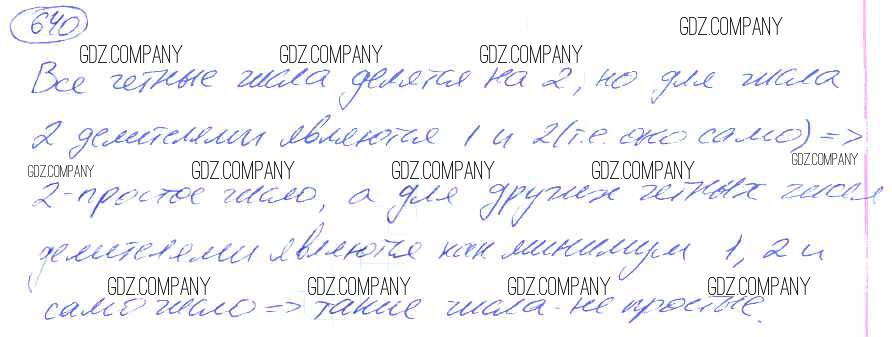 640
GDZ.COMPANY
GDZ.COMPANY GDZ.COMPANY GDZ.COMPANY
Все четные числа делятся на 2, но для числа
2 делителями являются 1 и 2 (т.е. оно само) =>
GDZ.COMPANY GDZ.COMPANY GDZ.COMPANY GDZ.COMPANY GDZ.COMPANY
2 - простое число, а для других четных чисел
делителями являются как минимум 1, 2 и
GDZ.COMPANY GDZ.COMPANY GDZ.COMPANY GDZ.COMPANY
само число => такие числа - не простые.